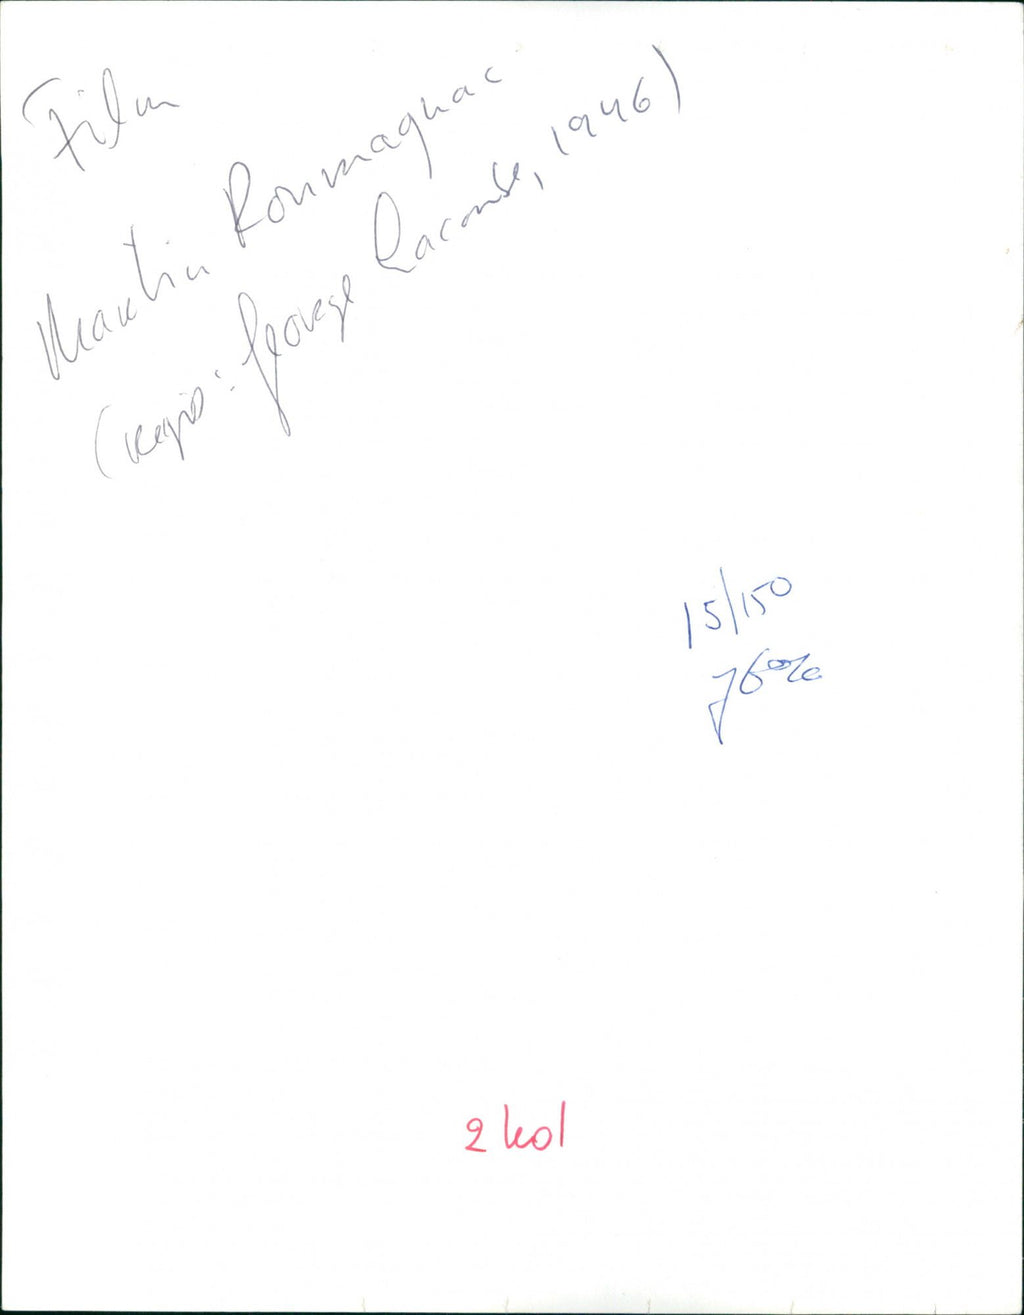 Film
Martin Roumagnac
(regis: George Lacombe, 1946)
15/150
2 kol